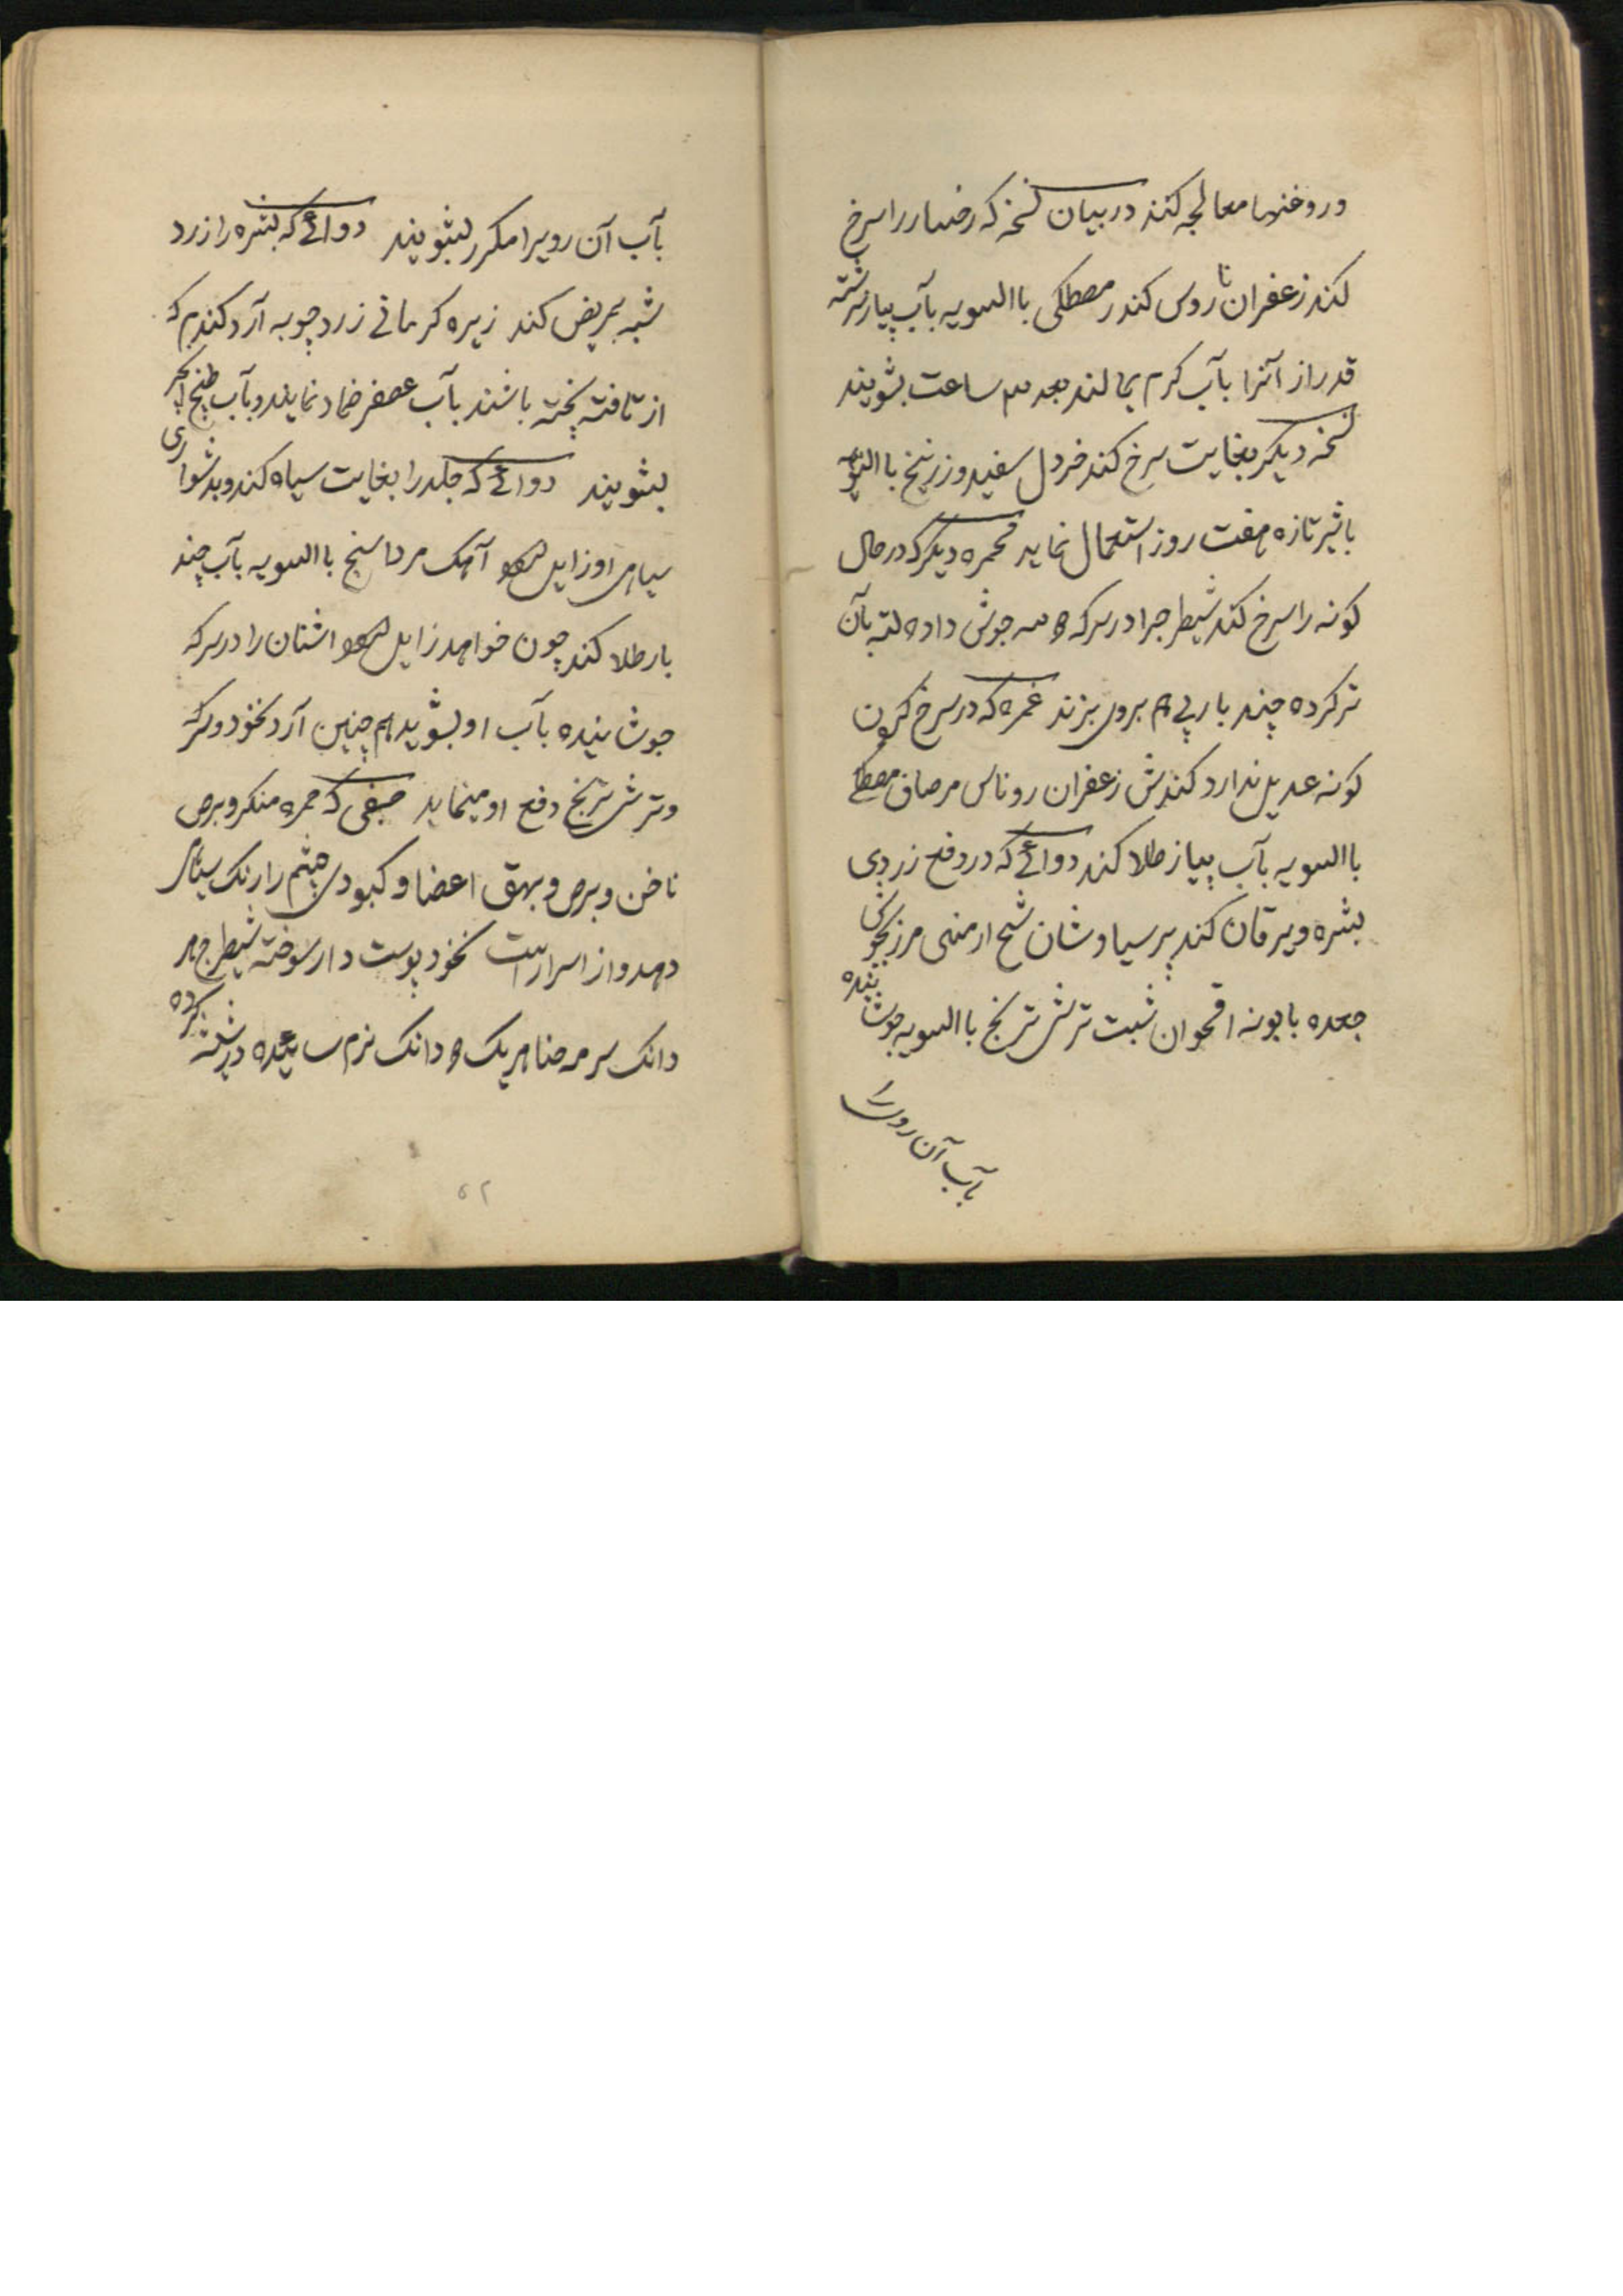 و روغنها معالجه کنند در بیان نسخه که رخسار را سرخ
کند زعفران روناس کندر مصطکی باالسویه بآب پیاز سرشته
قدر از آنرا بآب کرم بمالند بعد سه ساعت بشویند
نسخه دیکر بغایت سرخ کند خردل سفید و زرنیخ باالسویه
باشیر تازه هفت روز استعمال نماید محمره دیکر که در حال
کونه را سرخ کند شیطرج را در سرکه سه جوش داده لته بآن
تر کرده چند بار پی هم بروی بزند غمره که در سرخ کردن
کونه عدیل ندارد کندش زعفران روناس مر صاف مصطکی
باالسویه بآب پیاز طلا کند دوائے که در دفع زردی
بشره و یرقان کند پرسیاوشان شیح ارمنی مرزنجوش
جعده بابونه اقحوان شبت ترش ترنج باالسویه جوشانیده
بآب آن روی را
بآب آن رویرا مکرر بشویند دوائے که بشره را زرد
شبه بمریض کند زیره کرمانی زردچوبه آرد کندم که
از تافته پخته باشند بآب عصفر ضماد نمایند و بآب طبخ انجیر
بشویند دوائے که جلد را بغایت سیاه کند و بدشواری
سیاهی او زایل شود آهک مرداسنج باالسویه بآب چند
بار طلا کند چون خواهد زایل شود اشنان را در سرکه
جوشانیده بآب او بشوید هم چنین آرد نخود و سرکه
و ترش ترنج دفع او مینماید صبغی که حمره منکر و برص
ناخن و برص و بهق اعضا و کبودی چشم را رنک سیاهی
دهد و از اسرار است نخود پوست دار سوخته شیطرج هر
دانک سرمه حنا هر یک دانک نرم سائیده در شیشه کرده
۵۲